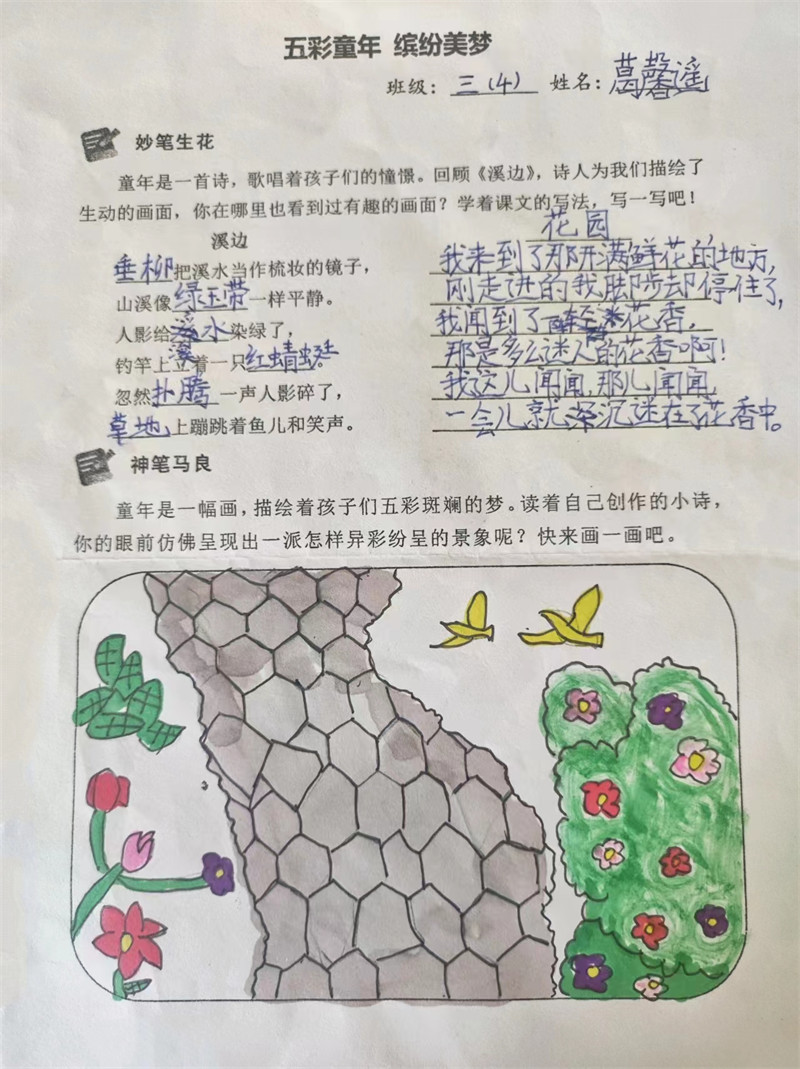 五彩童年 缤纷美梦
班级：三（4） 姓名：葛馨遥
妙笔生花
童年是一首诗，歌唱着孩子们的憧憬。回顾《溪边》，诗人为我们描绘了
生动的画面，你在哪里也看到过有趣的画面？学着课文的写法，写一写吧！
溪边
垂柳把溪水当作梳妆的镜子，
山溪像绿玉带一样平静。
人影给溪水染绿了，
钓竿上立着一只红蜻蜓。
忽然扑腾一声人影碎了，
草地上蹦跳着鱼儿和笑声。
花园
我来到了那开满鲜花的地方，
刚走进的我脚步却停住了，
我闻到了花香，
那是多么迷人的花香啊！
我这儿闻闻，那儿闻闻
一会儿就沉迷在了花香中。
神笔马良
童年是一幅画，描绘着孩子们五彩斑斓的梦。读着自己创作的小诗，
你的眼前仿佛呈现出一派怎样异彩纷呈的景象呢？快来画一画吧。